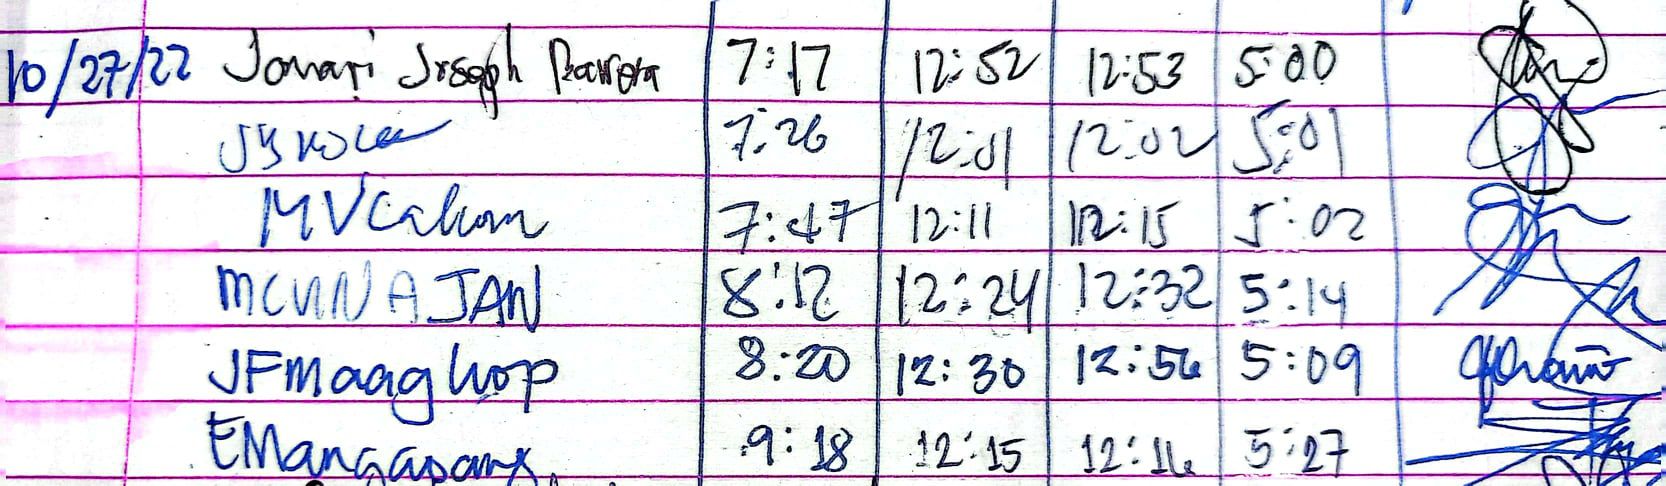 10/27/22 Jomari Joseph 7:17 12:52 12:53 5:00
7:26 12:01 12:02 5:01
7:47 12:11 12:15 5:02
JAN 8:12 12:24 12:32 5:14
JFMaaghop 8:20 12:30 12:56 5:09
EMangapang 9:18 12:15 12:16 5:27